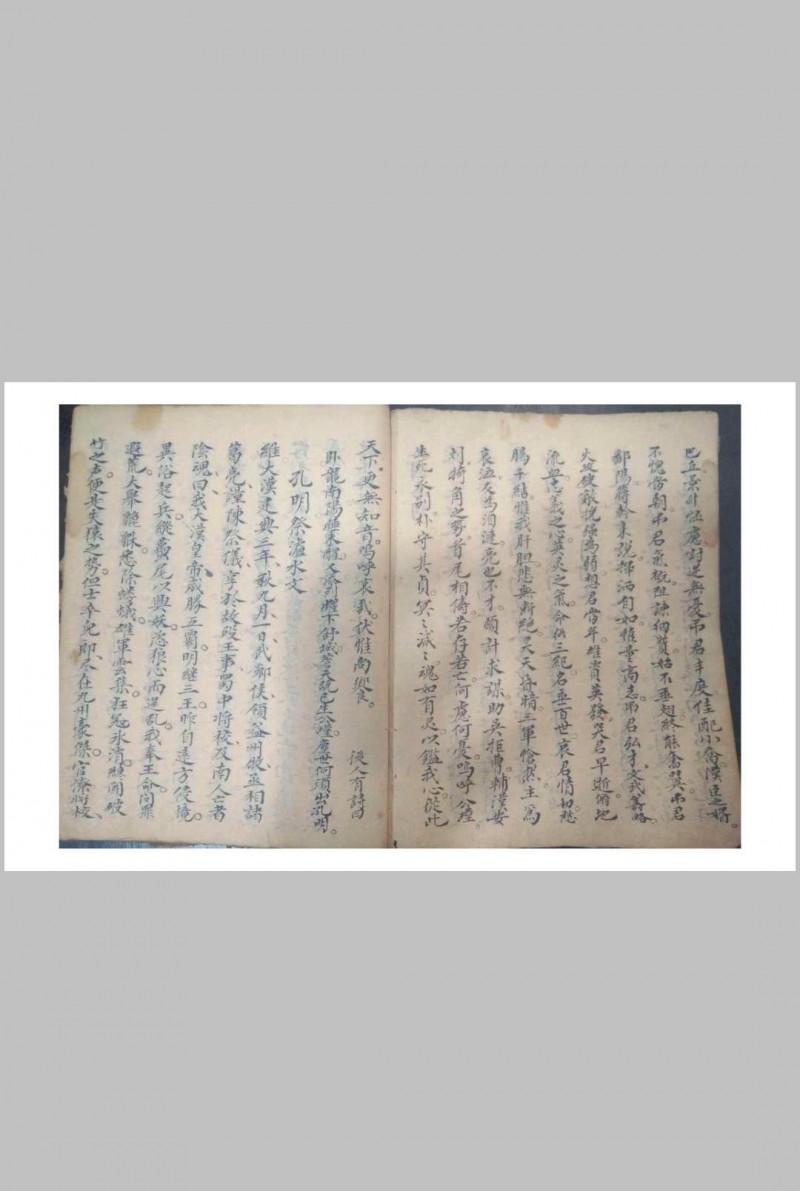 巴丘景升恒慮討逆無憂吊君丰度佳配小喬漢臣之婿
不愧當朝吊君氣概阻諫納質始不垂翅終能奮翼吊君
鄱陽蔣幹來說揮洒自如雅量高志吊君弘才文武籌略
火攻破敵挽強為弱想君當年雄資英發哭君早逝俯地
流血忠義之心英灵之氣命終三紀名垂百世哀君情切愁
腸千結惟我肝胆悲無断絕昊天昏暗三軍愴然主為
哀泣友為泪漣亮也不才丐計求謀助吳拒曹輔漢安
刘掎角之势首尾相儔若存若亡何慮何憂嗚呼公瑾
生死永別朴守其貞冥々滅々魂如有灵以鑑我心從此
天下更無知音嗚呼哀哉伏惟尚饗 後人有詩曰
卧龍南陽睡未醒又添列曜下舒城蒼天既已生公瑾塵世何須出孔明
孔明祭瀘水文
維大漢建興三年秋九月一日武鄉侯領益州牧丞相諸
葛亮謹陳祭儀享於故歿王事蜀中將校及南人亡者
陰魂曰我大漢皇帝威勝五霸明繼三王昨自遠方侵境
異俗起兵縱蠆尾以興妖恣狼心而逞乱我奉王命問罪
遐荒大舉貔貅悉除螻蟻雄軍雲集狂寇氷消纔聞破
竹之声便是失猿之势但士卒兒郎尽在九州豪傑官僚將校